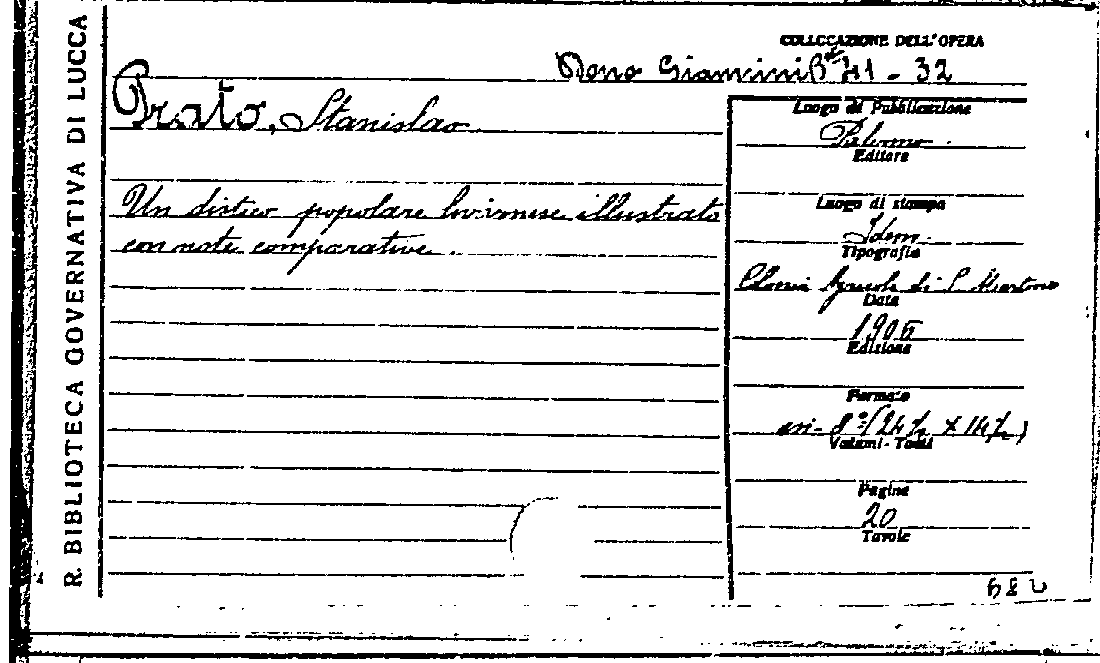 R. BIBLIOTECA GOVERNATIVA DI LUCCA
COLLOCAZIONE DELL'OPERA
Dono Giannini 41 - 32
Prato, Stanislao
Un distico popolare livornese illustrato
con note comparative.
Luogo di Pubblicazione
Palermo
Editore
Luogo di stampa
Idem.
Tipografia
Colonia Agricola di S. Martino
Data
1906
Edizione
Formato
in-8º (24½ × 14½)
Volumi - Tomi
Pagine
20
Tavole